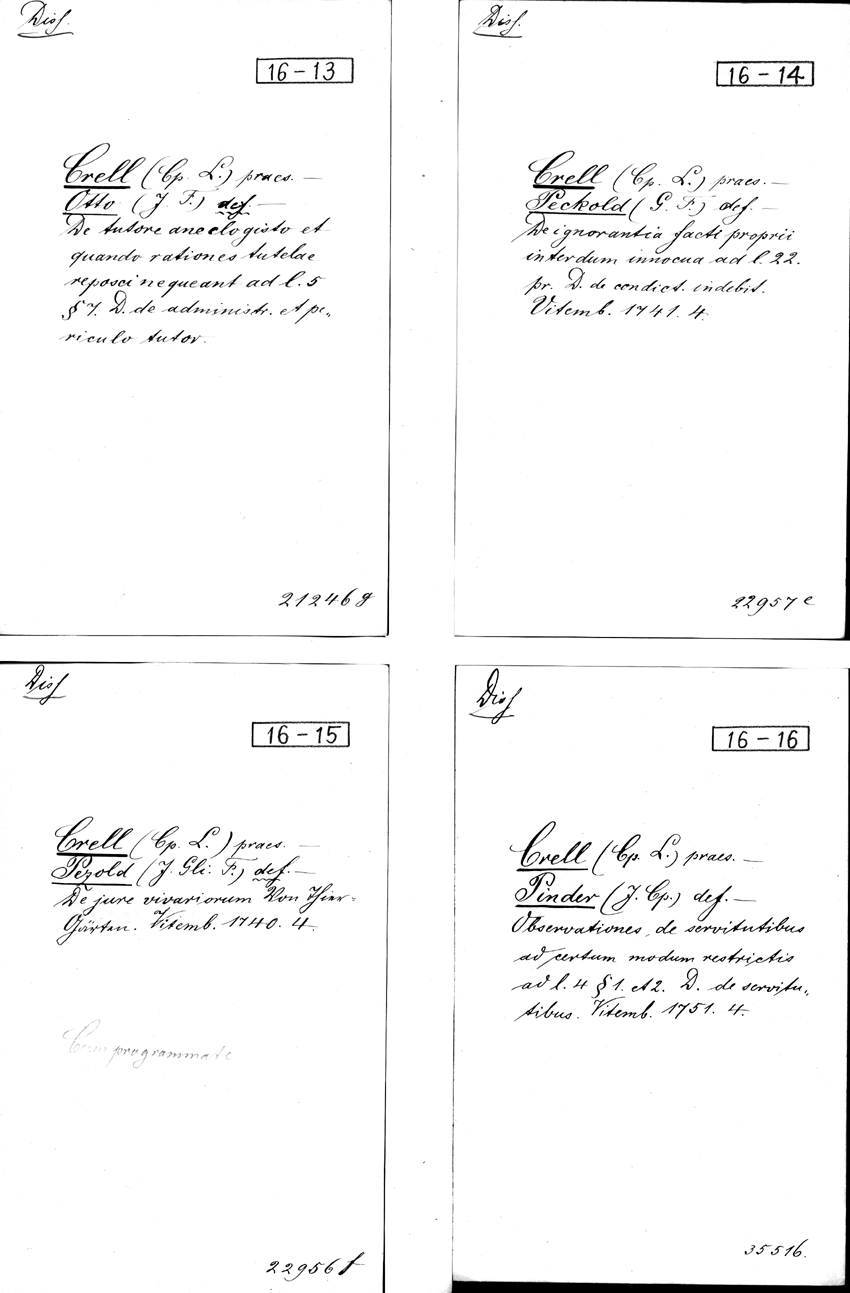 Diss.
16-13
Crell (Cp. L.) praes. —
Otto (J. F.) def. —
De tutore aneclogisto et
quando rationes tutelae
reposci nequeant ad l. 5
§ 7. D. de administr. et pe„
riculo tutor.
21246 g
Diss.
16-14
Crell (Cp. L.) praes. —
Peckold (G. F.) def. —
De ignorantia facti proprii
interdum innocua ad l. 22.
pr. D. de condict. indebit.
Vitemb. 1741. 4.
22957 e
Diss
16-15
Crell (Cp. L.) praes. —
Pezold (J. Gli. F.) def. —
De jure vivariorum Von Thier-
Gärten. Vitemb. 1740. 4.
Cum programmate
22956 f
Diss
16-16
Crell (Cp. L.) praes. —
Pinder (J. Cp.) def. —
Observationes de servitutibus
ad certum modum restrictis
ad l. 4 § 1. et 2. D. de servitu„
tibus. Vitemb. 1751. 4.
35516.